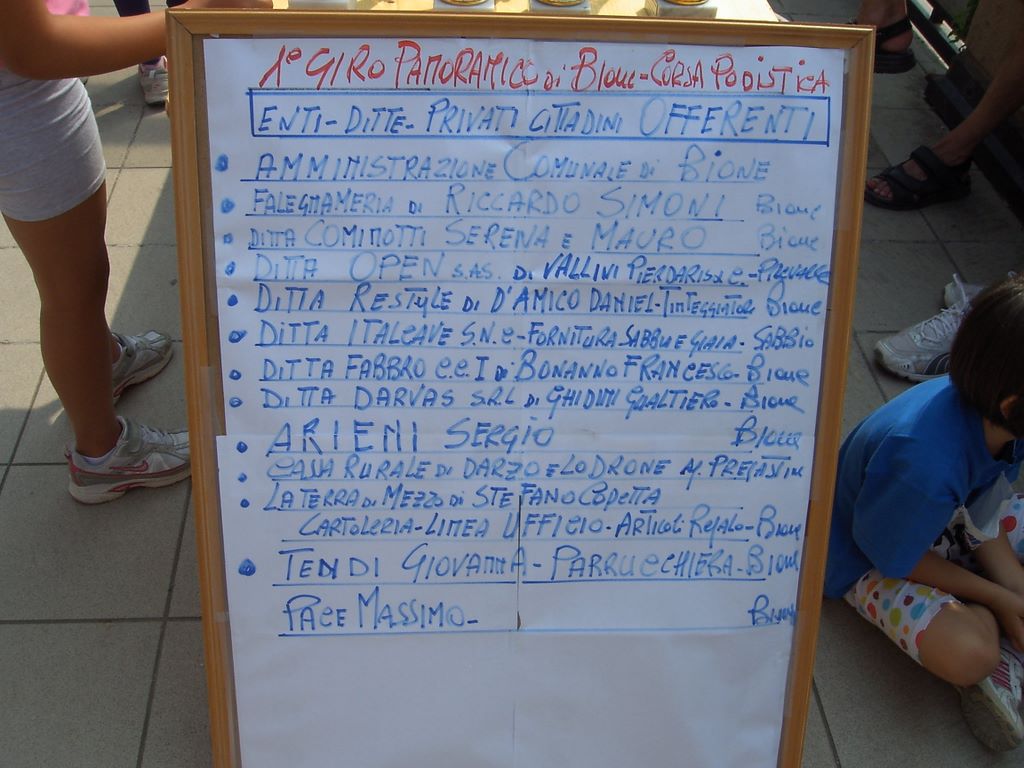 1° GIRO PANORAMICO di Bione - CORSA PODISTICA
ENTI - DITTE - PRIVATI CITTADINI OFFERENTI
AMMINISTRAZIONE COMUNALE di BIONE
FALEGNAMERIA DI RICCARDO SIMONI Bione
DITTA COMINOTTI SERENA E MAURO Bione
DITTA OPEN S.A.S. DI VALLINI PIERDARIS & C. - PREVALLE
DITTA RESTYLE DI D'AMICO DANIEL - TINTEGGIATORE Bione
DITTA ITALCAVE S.N.C - FORNITURA SABBIA E GIAIA - SABBIO
DITTA FABBRO C.E.I di BONANNO FRANCESCO - Bione
DITTA DARVAS S.R.L DI GHIDINI GUALTIERO - Bione
ARIENI SERGIO Bione
CASSA RURALE DI DARZO E LODRONE
LA TERRA DI MEZZO DI STEFANO COPETTA
CARTOLERIA - LINEA UFFICIO - ARTICOLI REGALO - Bione
TENDI GIOVANNA - PARRUCCHIERA - Bione
PACE MASSIMO - Bione